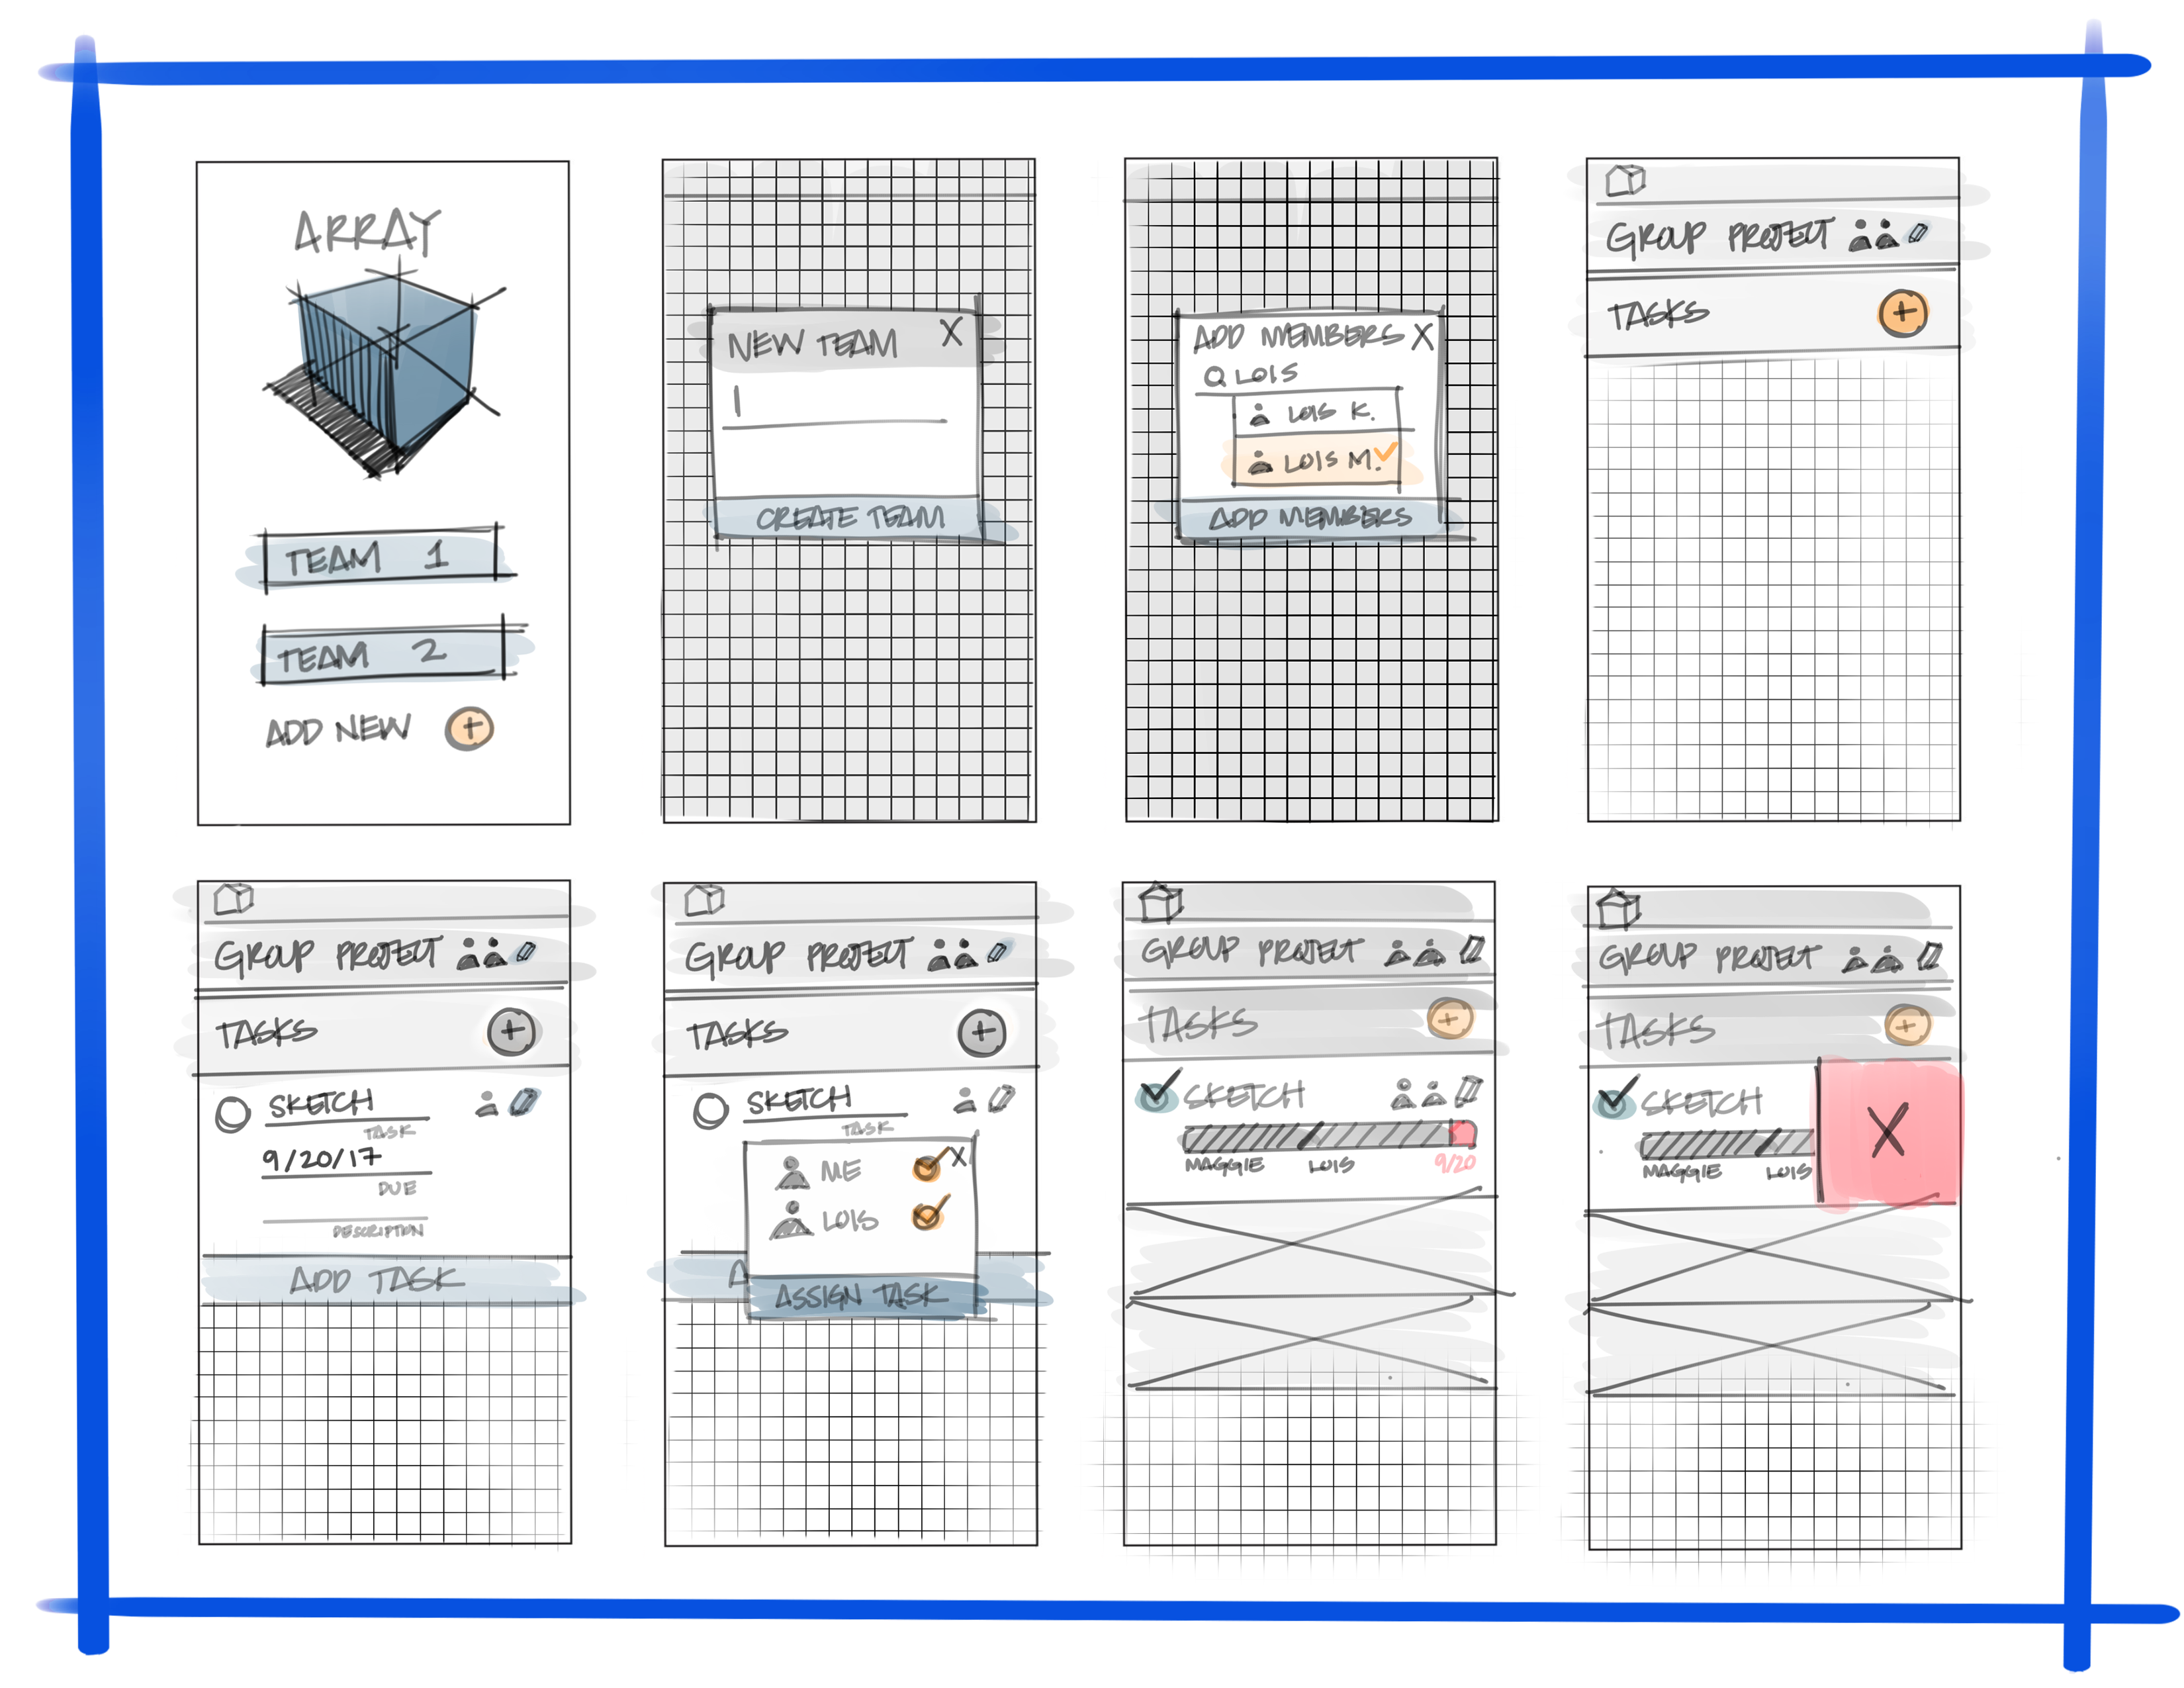 ARRAY
TEAM 1
TEAM 2
ADD NEW +
NEW TEAM X
CREATE TEAM
ADD MEMBERS X
LOIS
LOIS K.
LOIS M.
ADD MEMBERS
GROUP PROJECT
TASKS +
GROUP PROJECT
TASKS +
SKETCH
TASK
9/20/17
DUE
DESCRIPTION
ADD TASK
GROUP PROJECT
TASKS +
SKETCH
TASK
ME X
LOIS
A
ASSIGN TASK
GROUP PROJECT
TASKS +
SKETCH
MAGGIE LOIS 9/20
GROUP PROJECT
TASKS +
SKETCH
X
MAGGIE LOIS